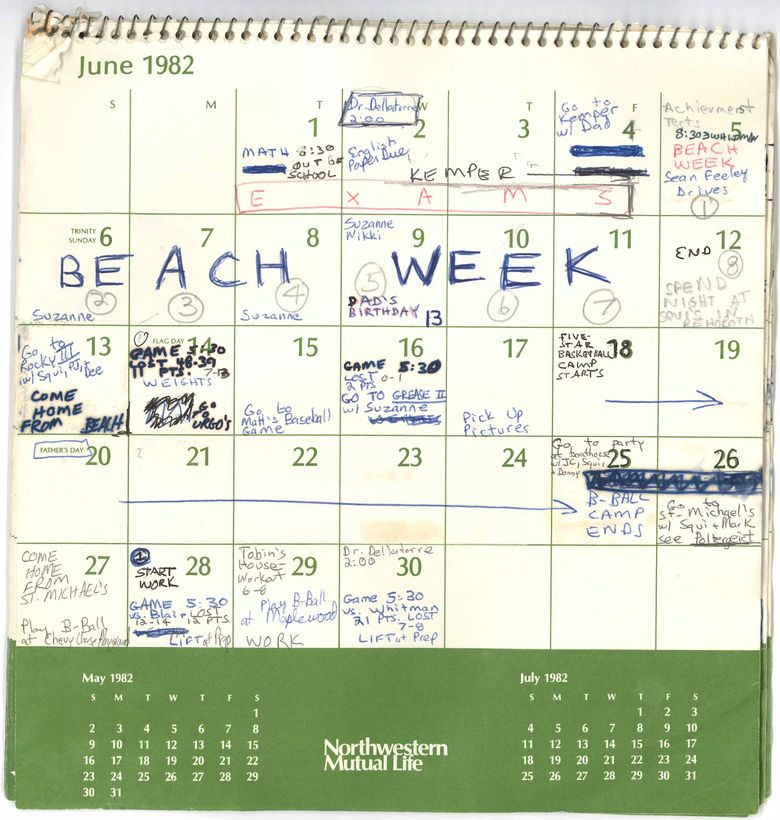 June 1982
S M T W T F S
1
MATH 8:30
OUT OF
SCHOOL
Dr. Dellatorre
2:00
2
English
Paper Due
3
KEMPER
Go to
Kemper
w/ Dad
4
E X A M S
Achievement
Tests
5
8:30
BEACH
WEEK
Sean Feeley
Drives
1
TRINITY
SUNDAY 6
7
8
Suzanne
Nikki
9
10
11
12
BEACH WEEK
Suzanne
2
3
4
Suzanne
5
DAD'S
BIRTHDAY
13
6
7
END
8
SPEND
NIGHT AT
SQUI'S IN
REHOBOTH
13
Go to
Rocky III
w/ Squi, PJ,
Dee
COME
HOME
FROM BEACH
FLAG DAY 14
GAME 5:30
LOST 48-39
11 PTS. 7-13
WEIGHTS
GO
URGO'S
15
Go to
Matt's Baseball
Game
16
GAME 5:30
LOST 0-1
2 PTS
GO TO GREASE II
w/ Suzanne
17
Pick Up
Pictures
18
FIVE-
STAR
BASKETBALL
CAMP
STARTS
19
FATHER'S DAY 20
21
22
23
24
Go to party
at boathouse
w/ JC, Squi
+ Donny
25
B-BALL
CAMP
ENDS
26
Go to
St. Michael's
w/ Squi + Mark
see Poltergeist
27
COME
HOME
FROM
ST. MICHAEL'S
Play B-Ball
at Chevy Chase Playground
28
1
START
WORK
GAME 5:30
vs. Blair LOST
12-14 12 PTS.
LIFT at Prep
Tobin's
House-
Workout
6-8
29
Play B-Ball
at Maplewood
WORK
Dr. Dellatorre
2:00
30
Game 5:30
vs. Whitman
21 PTS. LOST
7-8
LIFT at Prep
May 1982
S M T W T F S
1
2 3 4 5 6 7 8
9 10 11 12 13 14 15
16 17 18 19 20 21 22
23 24 25 26 27 28 29
30 31
Northwestern
Mutual Life
July 1982
S M T W T F S
1 2 3
4 5 6 7 8 9 10
11 12 13 14 15 16 17
18 19 20 21 22 23 24
25 26 27 28 29 30 31